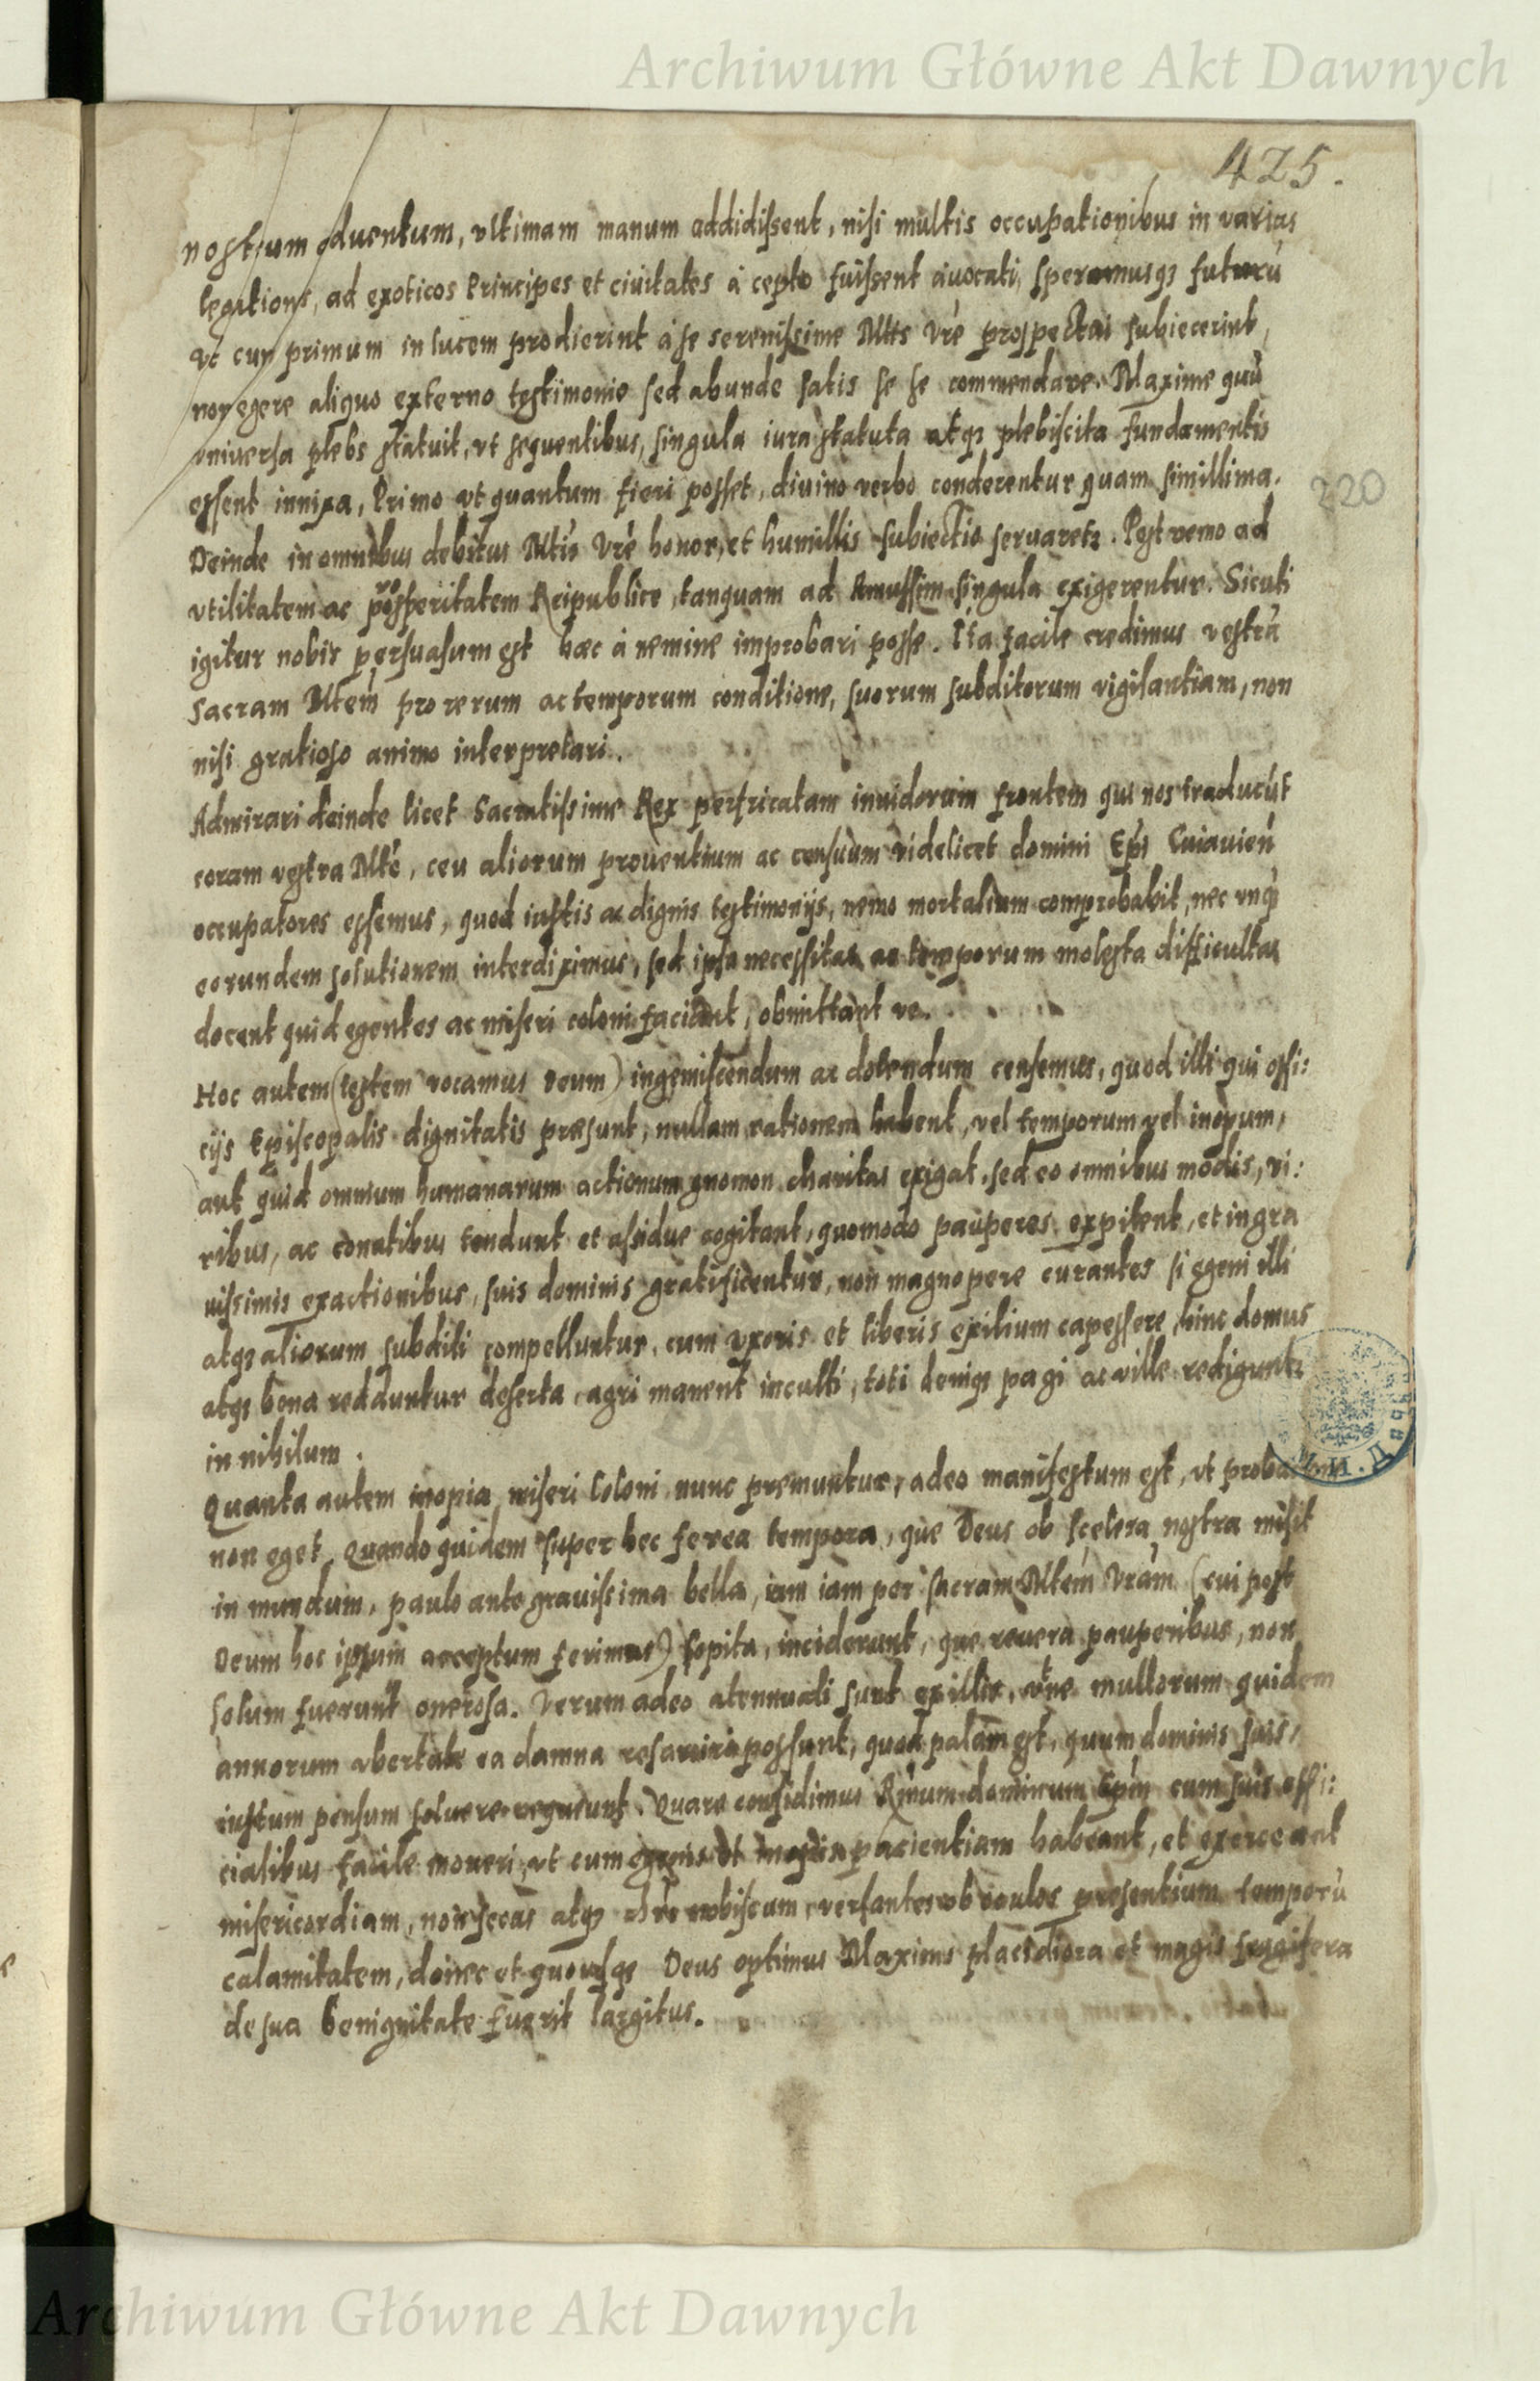 Archiwum Główne Akt Dawnych
425.
nostrum aduentum, vltimam manum addidissent, nisi multis occupationibus in varias
legations, ad exoticos Principes et ciuitates à cepto fuissent auocati, speramusq3 futurū
vt cum primum in lucem prodierint à se serenissime Mtis Vrē prospectai subiecerint,
non egere aliquo externo testimonio sed abunde satis se se commendare. Maxime quū
vniuersa plebs statuit, vt sequentibus, singula iura statuta atq3 plebiscita fundamentis
essent innixa, Primo vt quantum fieri posset, diuino verbo conderentur quam simillima.
220
Deinde in omnibus debitus Mtis Vrē honor, et humillis subiectio seruaretr. Postremo ad
vtilitatem ac prosperitatem Reipublice, tanquam ad Amussim singula exigerentur. Sicuti
igitur nobis persuasum est hæc à nemine improbari posse. Ita facile credimus vestrā
Sacram Mtem̄ pro rerum ac temporum conditione, suorum subditorum vigilantiam, non
nisi gratioso animo interpretari.
Admirari deinde licet Sacratissime Rex perfricatam inuidorum frontem qui nos traducūt
coram vestra Mtē, ceu aliorum prouentium ac censuum videlicet domini Ep̄i Cuiauien̄
occupatores essemus, quod iustis ac dignis testimonijs, nemo mortalium comprobabit, nec vnq̄
eorundem solutionem interdiximus, sed ipsa necessitas ac temporum molesta difficultas
docent quid egentes ac miseri coloni faciant, obmittant ve.
Hoc autem (testem vocamus deum) ingemiscendum ac dolendum censemus, quod illi qui offi:
cijs Episcopalis dignitatis præsunt, nullam rationem habent, vel temporum vel inopum,
aut quid omnium humanarum actionum gnomon charitas exigat. sed eo omnibus modis, vi:
ribus, ac conatibus tendunt et assidue cogitant, quomodo pauperes expilent, et ingra
uissimis exactionibus, suis dominis gratificentur, non magnopere curantes si egeni illi
atq3 aliorum subditi compelluntur, cum vxoris et liberis exilium capessere, hinc domus
atq3 bona redduntur deserta, agri manent inculti, toti deniq3 pagi ac ville rediguntr
in nihilum.
Quanta autem inopia miseri Coloni nunc premuntur, adeo manifestum est, vt
non eget. Quando quidem super hec ferea tempora, que Deus ob scelera nostra misit
in mundum, paulo ante grauissima bella, iam iam per sacram Mtem̄ Vram̄ (cui post
Deum hoc ipsum acceptum ferimus) sopita, inciderunt, que reuera pauperibus, non
solum fuerunt onerosa. Verum adeo atennuati sunt ex illis, vt ne multorum quidem
annorum vbertate ea damna resarciri possunt, quod palam est, quum dominis suis,
iustum pensum soluere nequeunt. Quare confidimus Rm̄um dominum Ep̄m cum suis offi:
cialibus facile moueri, vt cum egenis pacientiam habeant, et exerceant
misericordiam, non secus atq3 nobiscum, versantes ob oculos presentium temporū
calamitatem, donec et quousq3 Deus optimus Maximus placidiora et magis frugifera
de sua benignitate fuerit largitus.
Archiwum Główne Akt Dawnych